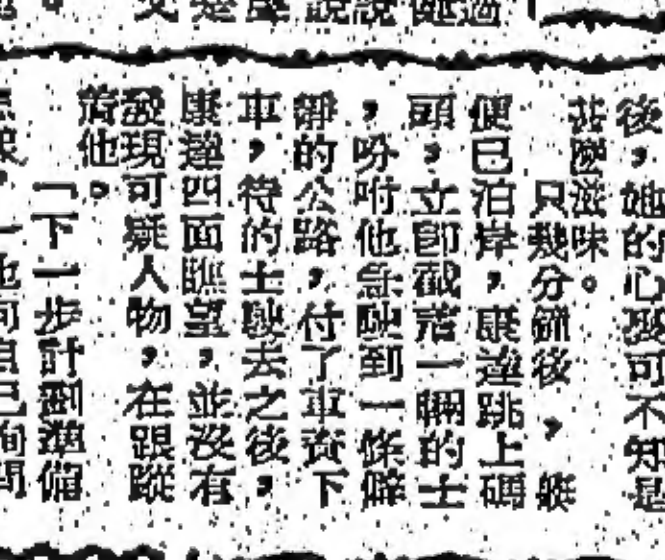 後，她的心裏可不知是
甚麼滋味。
只幾分鐘後，艇
便已泊岸，康達跳上碼
頭，立即截着一輛的士
，吩咐他急駛到一條僻
靜的公路，付了車資下
車，待的士駛去之後，
康達四面瞧望，並沒有
發現可疑人物，在跟蹤
着他。
「下一步計劃準備